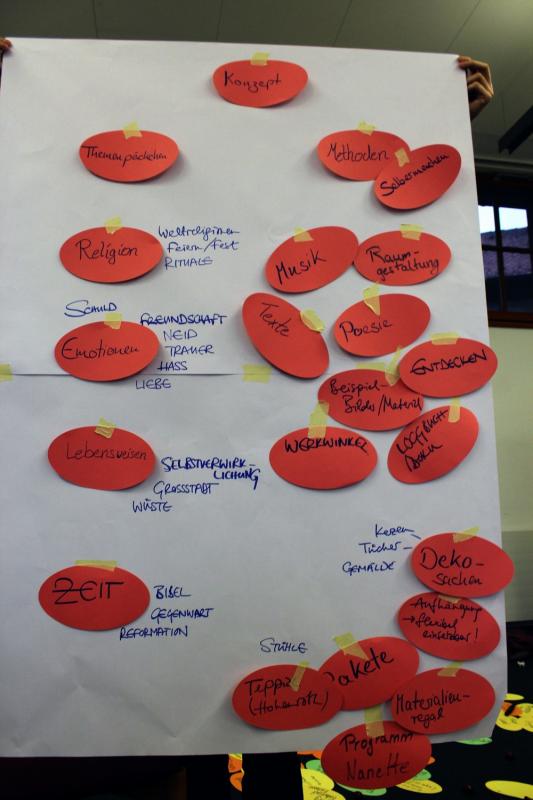 Konzept
Themenpäckchen
Methoden
Selbermachen
Religion
Weltreligionen
Feiern/Fest
RITUALE
Musik
Raum-
gestaltung
SCHULD
Emotionen
FREUNDSCHAFT
NEID
TRAUER
HASS
LIEBE
Texte
Poesie
ENTDECKEN
Beispiel-
Bilder/Material
Lebensweisen
SELBSTVERWIRK-
LICHUNG
GROSSTADT
WÜSTE
WERKWINKEL
LOGBUCH
Kerzen
Tücher
GEMÄLDE
Deko-
sachen
ZEIT
BIBEL
GEGENWART
REFORMATION
Aufhängung
→ flexibel
einsetzbar!
STÜHLE
Pakete
Materialien-
regal
Programm
Nanette